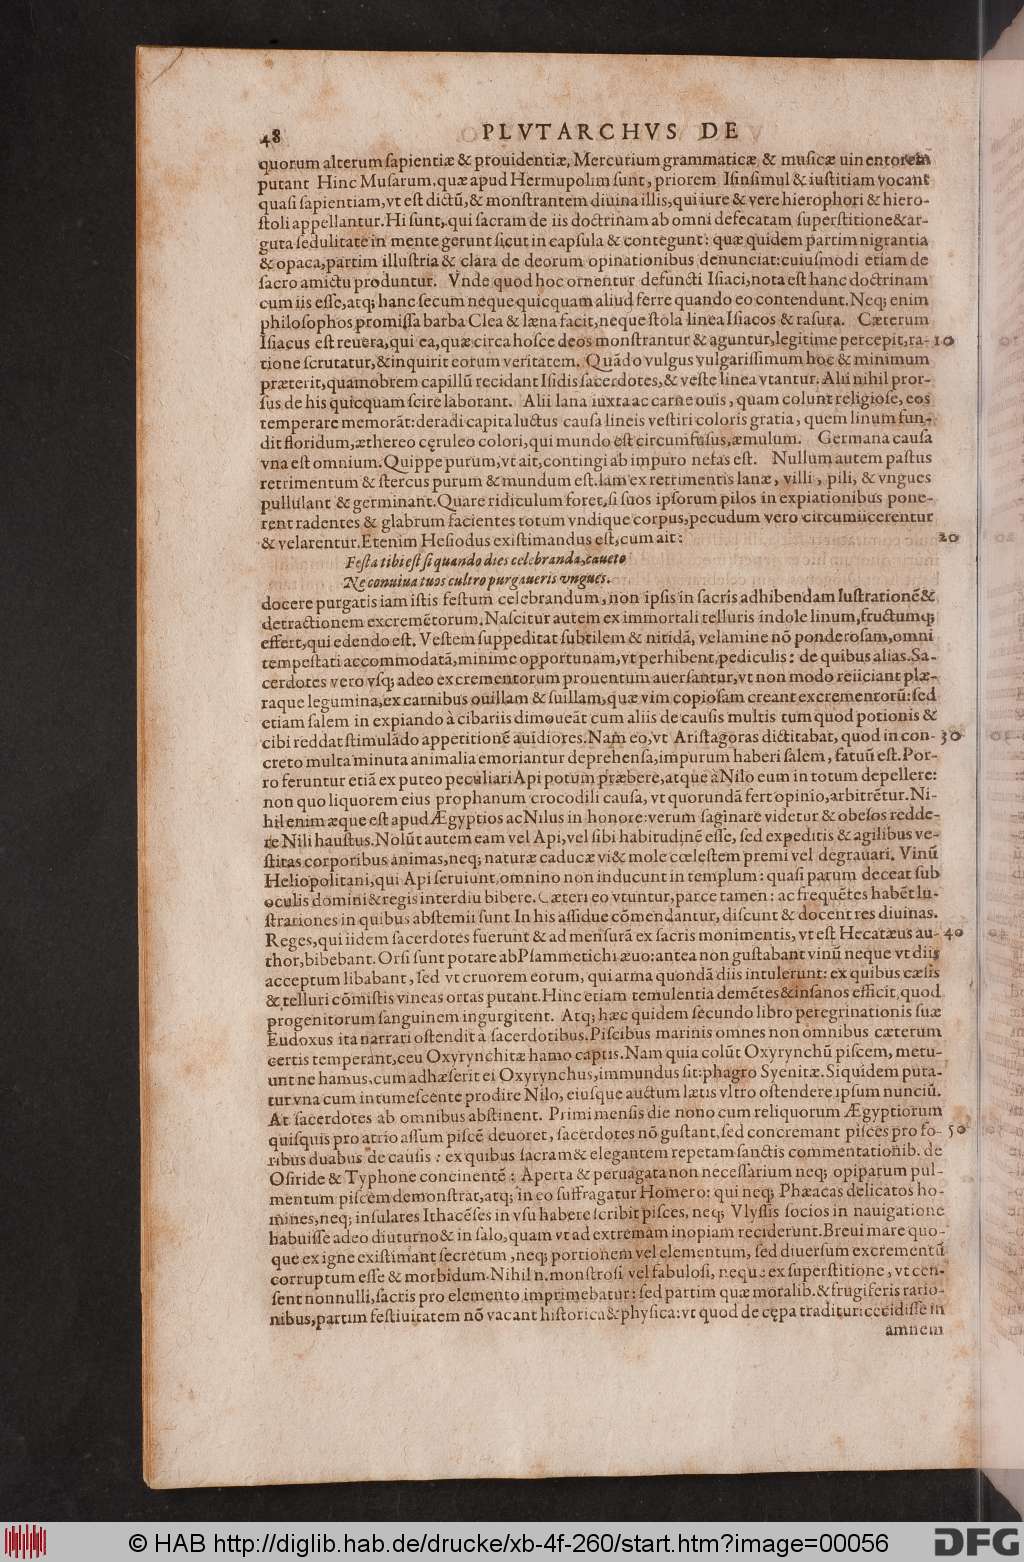 48 PLVTARCHVS DE
quorum alterum sapientiæ & prouidentiæ, Mercurium grammaticæ & musicæ uin entorem
putant Hinc Musarum, quæ apud Hermupolim sunt, priorem Isin simul & iustitiam vocant
quasi sapientiam, vt est dictũ, & monstrantem diuina illis, qui iure & vere hierophori & hiero-
stoli appellantur. Hi sunt, qui sacram de iis doctrinam ab omni defecatam superstitione & ar-
guta sedulitate in mente gerunt sicut in capsula & contegunt: quæ quidem partim nigrantia
& opaca, partim illustria & clara de deorum opinationibus denunciat: cuiusmodi etiam de
sacro amictu produntur. Vnde quod hoc ornentur defuncti Isiaci, nota est hanc doctrinam
cum iis esse, atq; hanc secum neque quicquam aliud ferre quando eo contendunt. Neq; enim
philosophos promissa barba Clea & læna facit, neque stola linea Isiacos & rasura. Cæterum
Isiacus est reuera, qui ea, quæ circa hosce deos monstrantur & aguntur, legitime percepit, ra- 10
tione scrutatur, & inquirit eorum veritatem. Quãdo vulgus vulgarissimum hoc & minimum
præterit, quamobrem capillũ recidant Isidis sacerdotes, & veste linea vtantur. Alii nihil pror-
sus de his quicquam scire laborant. Alii lana iuxta ac carne ouis, quam colunt religiose, eos
temperare memorãt: deradi capita luctus causa lineis vestiri coloris gratia, quem linum fun-
dit floridum, æthereo cęruleo colori, qui mundo est circumfusus, æmulum. Germana causa
vna est omnium. Quippe purum, vt ait, contingi ab impuro nefas est. Nullum autem pastus
retrimentum & stercus purum & mundum est. Iam ex retrimentis lanæ, villi, pili, & vngues
pullulant & germinant. Quare ridiculum foret, si suos ipsorum pilos in expiationibus pone-
rent radentes & glabrum facientes totum vndique corpus, pecudum vero circumiicerentur
& velarentur. Etenim Hesiodus existimandus est, cum ait: 20
Festa tibi est si quando dies celebranda, caueto
Ne conuiua tuos cultro purgaueris vngues.
docere purgatis iam istis festum celebrandum, non ipsis in sacris adhibendam lustrationẽ &
detractionem excremẽtorum. Nascitur autem ex immortali telluris indole linum, fructumq;
effert, qui edendo est. Vestem suppeditat subtilem & nitidã, velamine nõ ponderosam, omni
tempestati accommodatã, minime opportunam, vt perhibent, pediculis: de quibus alias. Sa-
cerdotes vero vsq; adeo excrementorum prouentum auersantur, vt non modo reiiciant plæ-
raque legumina, ex carnibus ouillam & suillam, quæ vim copiosam creant excrementorũ: sed
etiam salem in expiando à cibariis dimoueãt cum aliis de causis multis tum quod potionis &
cibi reddat stimulãdo appetitionẽ auidiores. Nam eo, vt Aristagoras dictitabat, quod in con- 30
creto multa minuta animalia emoriantur deprehensa, impurum haberi salem, fatuũ est. Por-
ro feruntur etiã ex puteo peculiari Api potum præbere, atque à Nilo eum in totum depellere:
non quo liquorem eius prophanum crocodili causa, vt quorundã fert opinio, arbitrẽtur. Ni-
hil enim æque est apud Ægyptios ac Nilus in honore: verum saginare videtur & obesos redde-
re Nili haustus. Nolũt autem eam vel Api, vel sibi habitudinẽ esse, sed expeditis & agilibus ve-
stitas corporibus animas, neq; naturæ caducæ vi & mole cœlestem premi vel degrauari. Vinũ
Heliopolitani, qui Api seruiunt, omnino non inducunt in templum: quasi parum deceat sub
oculis domini & regis interdiu bibere. Cæteri eo vtuntur, parce tamen: ac frequẽtes habẽt lu-
strationes in quibus abstemii sunt In his assidue cõmendantur, discunt & docent res diuinas.
Reges, qui iidem sacerdotes fuerunt & ad mensurã ex sacris monimentis, vt est Hecatæus au- 40
thor, bibebant. Orsi sunt potare ab Psammetichi æuo: antea non gustabant vinũ neque vt diis
acceptum libabant, sed vt cruorem eorum, qui arma quondã diis intulerunt: ex quibus cæsis
& telluri cõmistis vineas ortas putant. Hinc etiam temulentia demẽtes & insanos efficit, quod
progenitorum sanguinem ingurgitent. Atq; hæc quidem secundo libro peregrinationis suæ
Eudoxus ita narrari ostendit a sacerdotibus. Piscibus marinis omnes non omnibus cæterum
certis temperant, ceu Oxyrynchitæ hamo captis. Nam quia colũt Oxyrynchũ piscem, metu-
unt ne hamus, cum adhæserit ei Oxyrynchus, immundus sit: phagro Syenitæ. Siquidem puta-
tur vna cum intumescente prodire Nilo, eiusque auctum lætis vltro ostendere ipsum nunciũ.
At sacerdotes ab omnibus abstinent. Primi mensis die nono cum reliquorum Ægyptiorum
quisquis pro atrio assum piscẽ deuoret, sacerdotes nõ gustant, sed concremant pisces pro fo- 50
ribus duabus de causis: ex quibus sacram & elegantem repetam sanctis commentationib. de
Osiride & Typhone concinentẽ: Aperta & peruagata non necessarium neq; opiparum pul-
mentum piscem demonstrat, atq; in eo suffragatur Homero: qui neq; Phæacas delicatos ho-
mines, neq; insulares Ithacẽses in vsu habere scribit pisces, neq; Vlyssis socios in nauigatione
habuisse adeo diuturno & in salo, quam vt ad extremam inopiam reciderunt. Breui mare quo-
que ex igne existimant secretum, neq; portionem vel elementum, sed diuersum excrementũ
corruptum esse & morbidum. Nihil n. monstrosi vel fabulosi, neque ex superstitione, vt cen-
sent nonnulli, sacris pro elemento imprimebatur: sed partim quæ moralib. & frugiferis ratio-
nibus, partim festiuitatem nõ vacant historica & physica: vt quod de cępa traditur: cecidisse in
amnem
© HAB http://diglib.hab.de/drucke/xb-4f-260/start.htm?image=00056 DFG